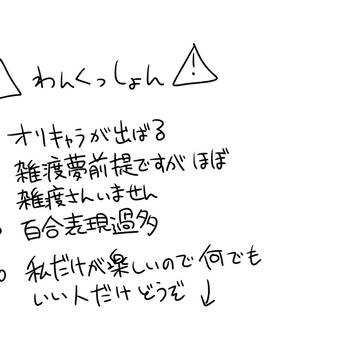 わんくっしょん
オリキャラが出ばる
雑渡夢前提ですが ほぼ
雑渡さんいません
百合表現過多
私だけが楽しいので何でも
いい人だけどうぞ ↓